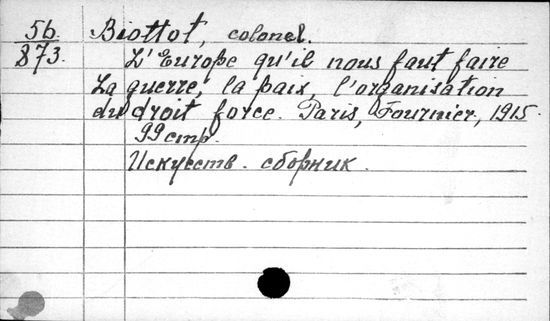 56. Biottot, colonel.
873. L'Europe qu'il nous faut faire
La guerre, la paix, l'organisation
du droit force. Paris, Fournier, 1915.
99 стр.
Искусств. сборник.